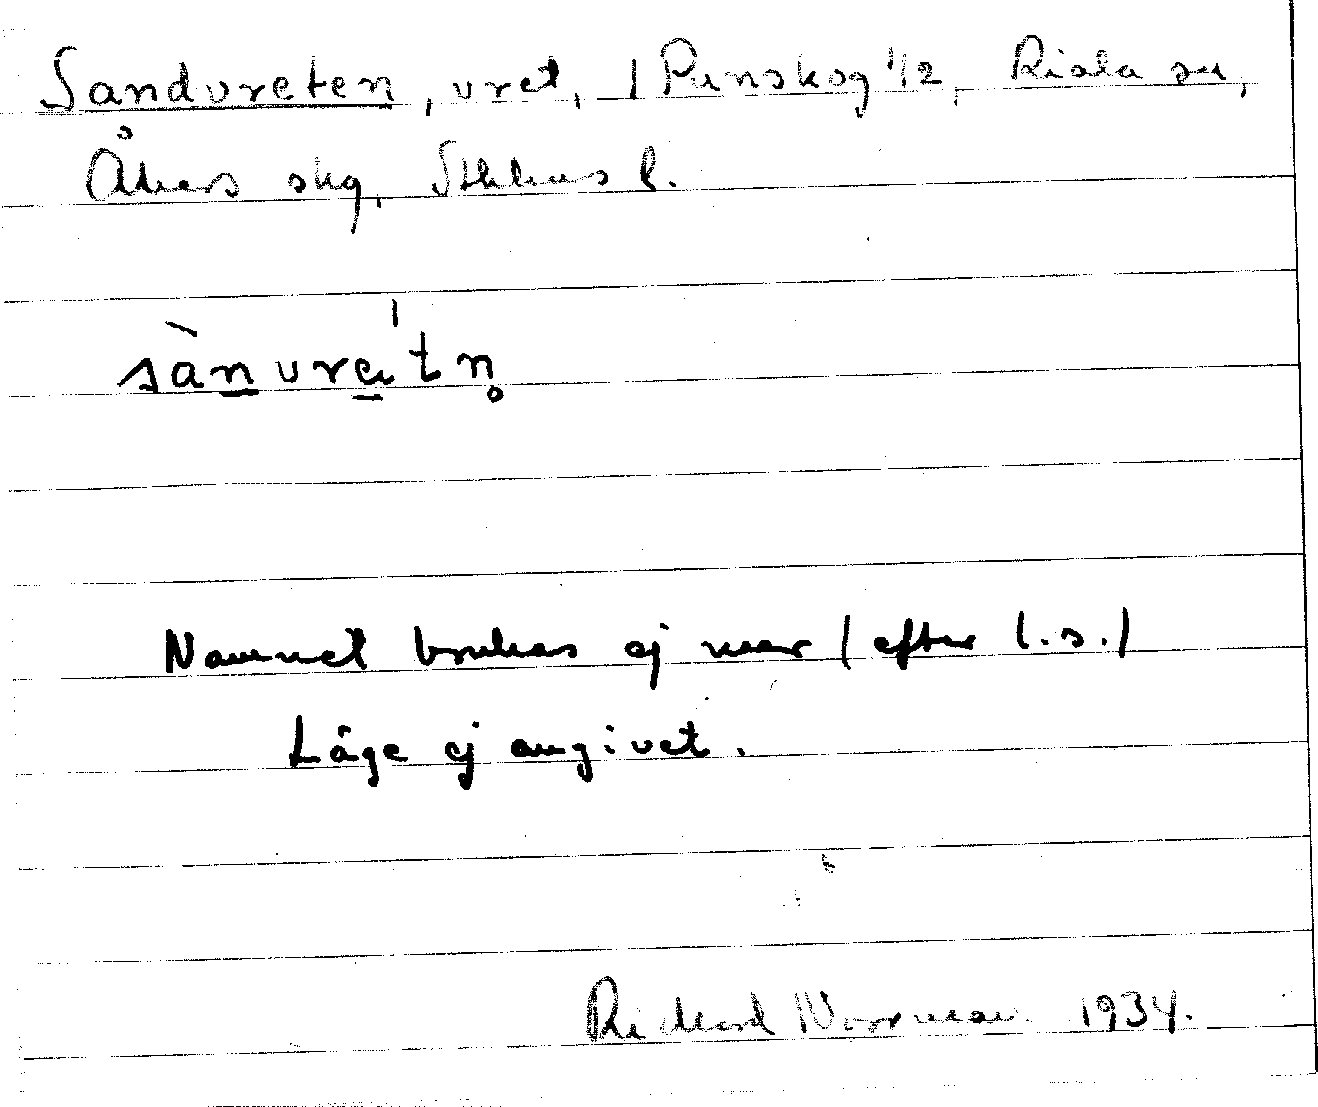 Sandvreten, vret, / Penskog 1/2, Riala sn,
Åkers skg, Sthlms l.
sànvrætn̥
Namnet brukas ej mer / efter l.s./
Läge ej angivet.
Richard Norrman 1934.